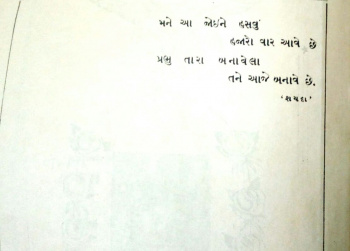 મને આ જોઇને હસવું
હજારો વાર આવે છે
પ્રભુ તારા બનાવેલા
તને આજે બનાવે છે.
'શયદા'